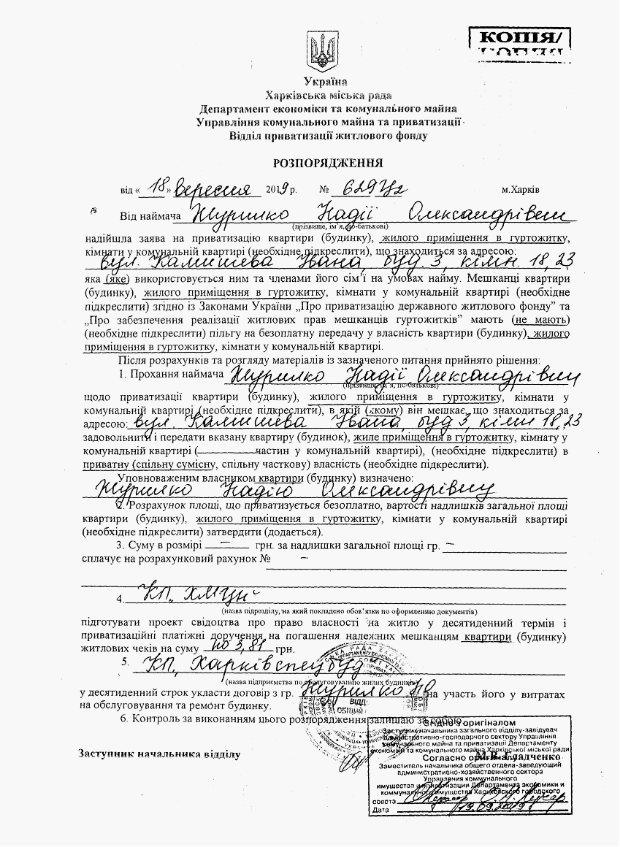 КОПІЯ/
Україна
Харківська міська рада
Департамент економіки та комунального майна
Управління комунального майна та приватизації
Відділ приватизації житлового фонду
РОЗПОРЯДЖЕННЯ
від « 18 » вересня 2019 р. № 629У2 м.Харків
Від наймача Журилко Надії Олександрівни
(прізвище, ім'я, по-батькові)
надійшла заява на приватизацію квартири (будинку), жилого приміщення в гуртожитку,
кімнати у комунальній квартирі (необхідне підкреслити), що знаходиться за адресою:
вул. Камишева Івана, буд 3, кімн. 18, 23
яка (яке) використовується ним та членами його сім'ї на умовах найму. Мешканці квартири
(будинку), жилого приміщення в гуртожитку, кімнати у комунальній квартирі (необхідне
підкреслити) згідно із Законами України „Про приватизацію державного житлового фонду" та
„Про забезпечення реалізації житлових прав мешканців гуртожитків" мають (не мають)
(необхідне підкреслити) пільгу на безоплатну передачу у власність квартири (будинку), жилого
приміщення в гуртожитку, кімнати у комунальній квартирі.
Після розрахунків та розгляду матеріалів із зазначеного питання прийнято рішення:
1. Прохання наймача Журилко Надії Олександрівни
щодо приватизації квартири (будинку), жилого приміщення в гуртожитку, кімнати у
комунальній квартирі (необхідне підкреслити), в якій (якому) він мешкає, що знаходиться за
адресою: вул. Камишева Івана, буд 3, кімн 18, 23
задовольнити і передати вказану квартиру (будинок), жиле приміщення в гуртожитку, кімнату у
комунальній квартирі ( частин у комунальній квартирі), (необхідне підкреслити) в
приватну (спільну сумісну, спільну часткову) власність (необхідне підкреслити).
Уповноваженим власником квартири (будинку) визначено:
Журилко Надію Олександрівну
2. Розрахунок площі, що приватизується безоплатно, вартості надлишків загальної площі
квартири (будинку), жилого приміщення в гуртожитку, кімнати у комунальній квартирі
(необхідне підкреслити) затвердити (додається).
3. Суму в розмірі — грн. за надлишки загальної площі гр. –
сплачує на розрахунковий рахунок № –
4. КП
(назва підрозділу, на який покладено обов'язки по оформленню документів)
підготувати проект свідоцтва про право власності на житло у десятиденний термін і
приватизаційні платіжні доручення на погашення належних мешканцям квартири (будинку)
житлових чеків на суму по 3,81 грн.
5. КП „Харківспецбуд"
(назва підприємства по обслуговуванню жилих будинків)
у десятиденний строк укласти договір з гр. Журилко на участь його у витратах
на обслуговування та ремонт будинку.
6. Контроль за виконанням цього розпорядження залишаю за собою.
Заступник начальника відділу
Згідно з оригіналом
Заступник начальника загального відділу-завідувач
адміністративно-господарчого сектору Управління
комунального майна та приватизації Департаменту
економіки та комунального майна Харківської міської ради
Согласно оригиналу
Заместитель начальника общего отдела-заведующий
административно-хозяйственного сектора
Управления коммунального
имущества и приватизации Департамента экономики и
коммунального имущества Харьковского городского
совета
Дата 19.09.2019